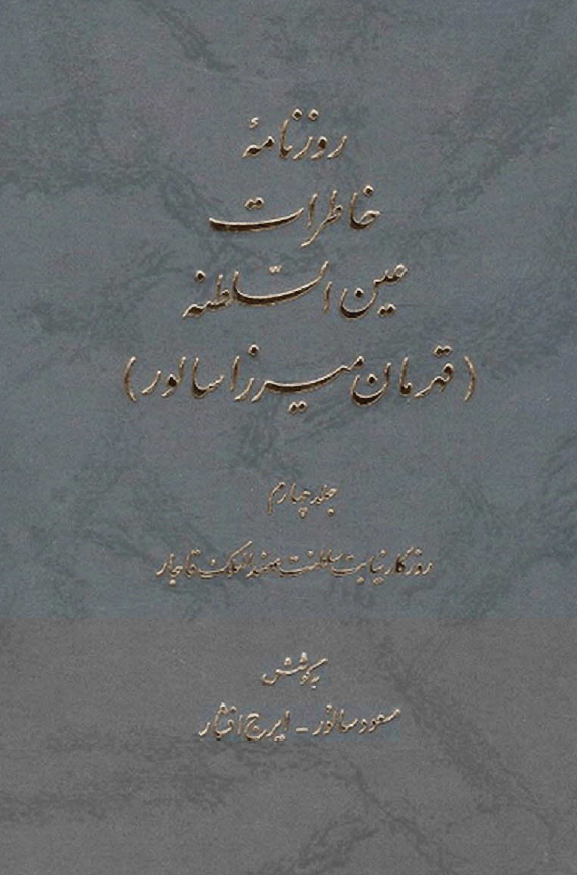 روزنامهٔ
خاطرات
عین السّلطنه
(قهرمان میرزا سالور)
جلد چهارم
روزگار نیابت سلطنت عضدالملک قاجار
به کوشش
مسعود سالور - ایرج افشار